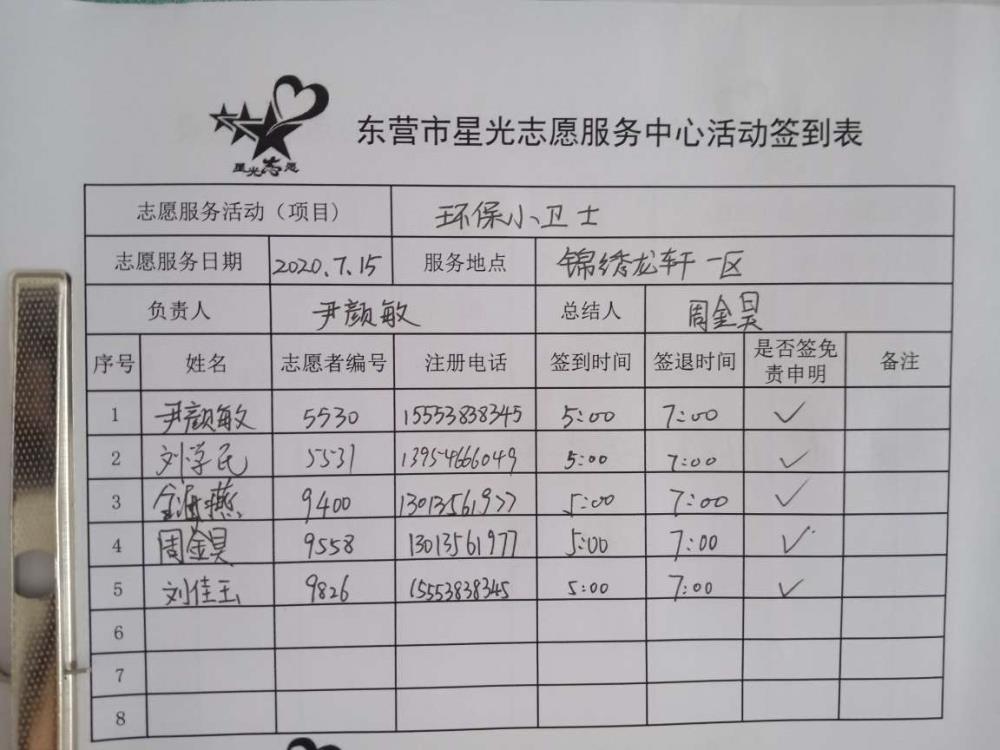 东营市星光志愿服务中心活动签到表
星光志愿
志愿服务活动（项目） 环保小卫士
志愿服务日期 2020.7.15 服务地点 锦绣龙轩一区
负责人 尹颜敏 总结人 周金昊
序号 姓名 志愿者编号 注册电话 签到时间 签退时间 是否签免责申明 备注
1 尹颜敏 5530 15553838345 5:00 7:00 ✓
2 刘学民 5531 13954666049 5:00 7:00 ✓
3 金海燕 9400 13013561977 5:00 7:00 ✓
4 周金昊 9558 13013561977 5:00 7:00 ✓
5 刘佳玉 9826 15553838345 5:00 7:00 ✓
6
7
8